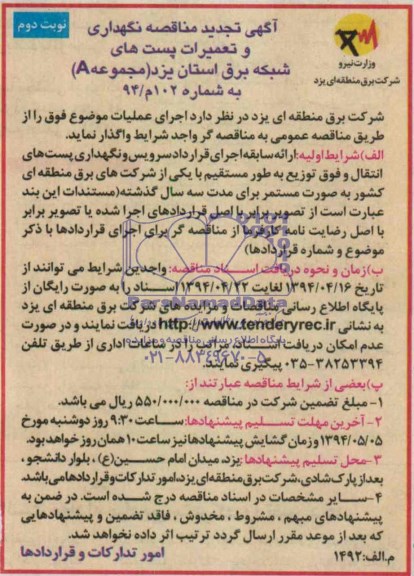 نوبت دوم
آگهی تجدید مناقصه نگهداری
و تعمیرات پست های
شبکه برق استان یزد(مجموعهA)
به شماره ۱۰۲م/۹۴
وزارت نیرو
شرکت برق منطقه‌ای یزد
شرکت برق منطقه ای یزد در نظر دارد اجرای عملیات موضوع فوق را از
طریق مناقصه عمومی به مناقصه گر واجد شرایط واگذار نماید.
الف)شرایط اولیه:ارائه سابقه اجرای قرارداد سرویس و نگهداری پست‌های
انتقال و فوق توزیع به طور مستقیم با یکی از شرکت های برق منطقه ای
کشور به صورت مستمر برای مدت سه سال گذشته(مستندات این بند
عبارت است از تصویر برابر با اصل قراردادهای اجرا شده یا تصویر برابر
با اصل رضایت نامه کارفرما از مناقصه گر برای اجرای قراردادها با ذکر
موضوع و شماره قراردادها)
ب)زمان و نحوه دریافت اسناد مناقصه: واجدین شرایط می توانند از
تاریخ ۱۳۹۴/۰۴/۱۶ لغایت ۱۳۹۴/۰۴/۲۲ اسناد را به صورت رایگان از
پایگاه اطلاع رسانی مناقصات و مزایده های شرکت برق منطقه ای یزد
به نشانی http://www.tenderyrec.ir دریافت نمایند و در صورت
عدم امکان دریافت اسناد، مراتب را در ساعات اداری از طریق تلفن
۰۳۵-۳۸۲۵۳۳۹۴ پیگیری نمایند.
پ)بعضی از شرایط مناقصه عبارتند از:
۱- مبلغ تضمین شرکت در مناقصه ۵۵۰/۰۰۰/۰۰۰ ریال می باشد.
۲- آخرین مهلت تسلیم پیشنهادها: ساعت ۹:۳۰ روز دوشنبه مورخ
۱۳۹۴/۰۵/۰۵ و زمان گشایش پیشنهادها نیز ساعت ۱۰ همان روز خواهد بود.
۳-محل تسلیم پیشنهادها :یزد، میدان امام حسین(ع) ، بلوار دانشجو ،
بعد از پارک شادی، شرکت برق منطقه‌ای یزد، امور تدارکات و قراردادها می باشد.
۴- سایر مشخصات در اسناد مناقصه درج شده است. در ضمن به
پیشنهادهای مبهم ، مشروط ، مخدوش ، فاقد تضمین و پیشنهادهایی
که بعد از موعد مقرر ارسال گردد ترتیب اثر داده نخواهد شد.
م.الف:۱۴۹۲
امور تدارکات و قراردادها
ParsNamadData
پایگاه اطلاع رسانی مناقصه و مزایده
۰۲۱-۸۸۳۴۹۶۷۰-۵